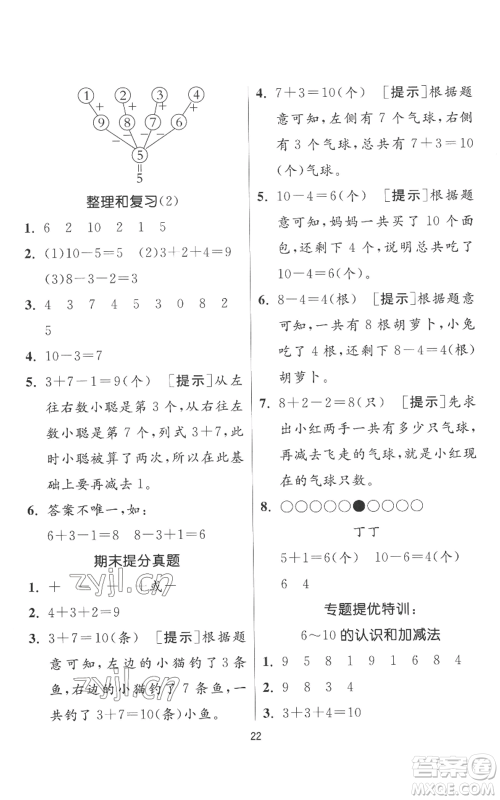 1 2 3 4
+ + + +
9 8 7 6
5
=
5
整理和复习(2)
1. 6 2 10 2 1 5
2. (1)10-5=5 (2)3+2+4=9
(3)8-3-2=3
3. 4 3 7 4 5 3 0 8 2
5
4. 10-3=7
5. 3+7-1=9(个) [提示]从左
往右数小聪是第 3 个,从右往
左数小聪是第 7 个,列式 3+7
计算时小聪被算了两次,所以
计算了两次,所以在此基
础上要再减去 1。
6. 答案不唯一,如:
6+3-1=8 8-3+1=6
期末提分真题
1. + - - +(或-)
2. 4+3+2=9
3. 3+7=10(条) [提示]根据题
意可知,左边的小猫钓了 3 条
鱼,右边的小猫钓了 7 条鱼,一
共钓了 3+7=10(条)小鱼。
4. 7+3=10(个) [提示]根据题
意可知,左侧有 7 个气球,右侧
有 3 个气球,总共有 7+3=10
(个)气球。
5. 10-4=6(个) [提示]根据题
意可知,妈妈一共买了 10 个面
包,还剩下 4 个,说明总共吃了
10-4=6(个)面包。
6. 8-4=4(根) [提示]根据题意
可知,一共有 8 根胡萝卜,小兔
吃了 4 根,还剩下 8-4=4(根)
胡萝卜。
7. 8+2-2=8(只) [提示]先求
出小红两手一共有多少只气球,
再减去飞走的气球,就是小红现在
的气球只数。
8. ○○○○○●○○○○
丁丁
5+1=6(个) 10-6=4(个)
6 4
专题提优特训:
6~10 的认识和加减法
1. 9 5 8 1 9 1 6 8 4
2. 9 8 3 4
3. 3+3+4=10
22
zyjl.cn
答案圈
MXQE.COM